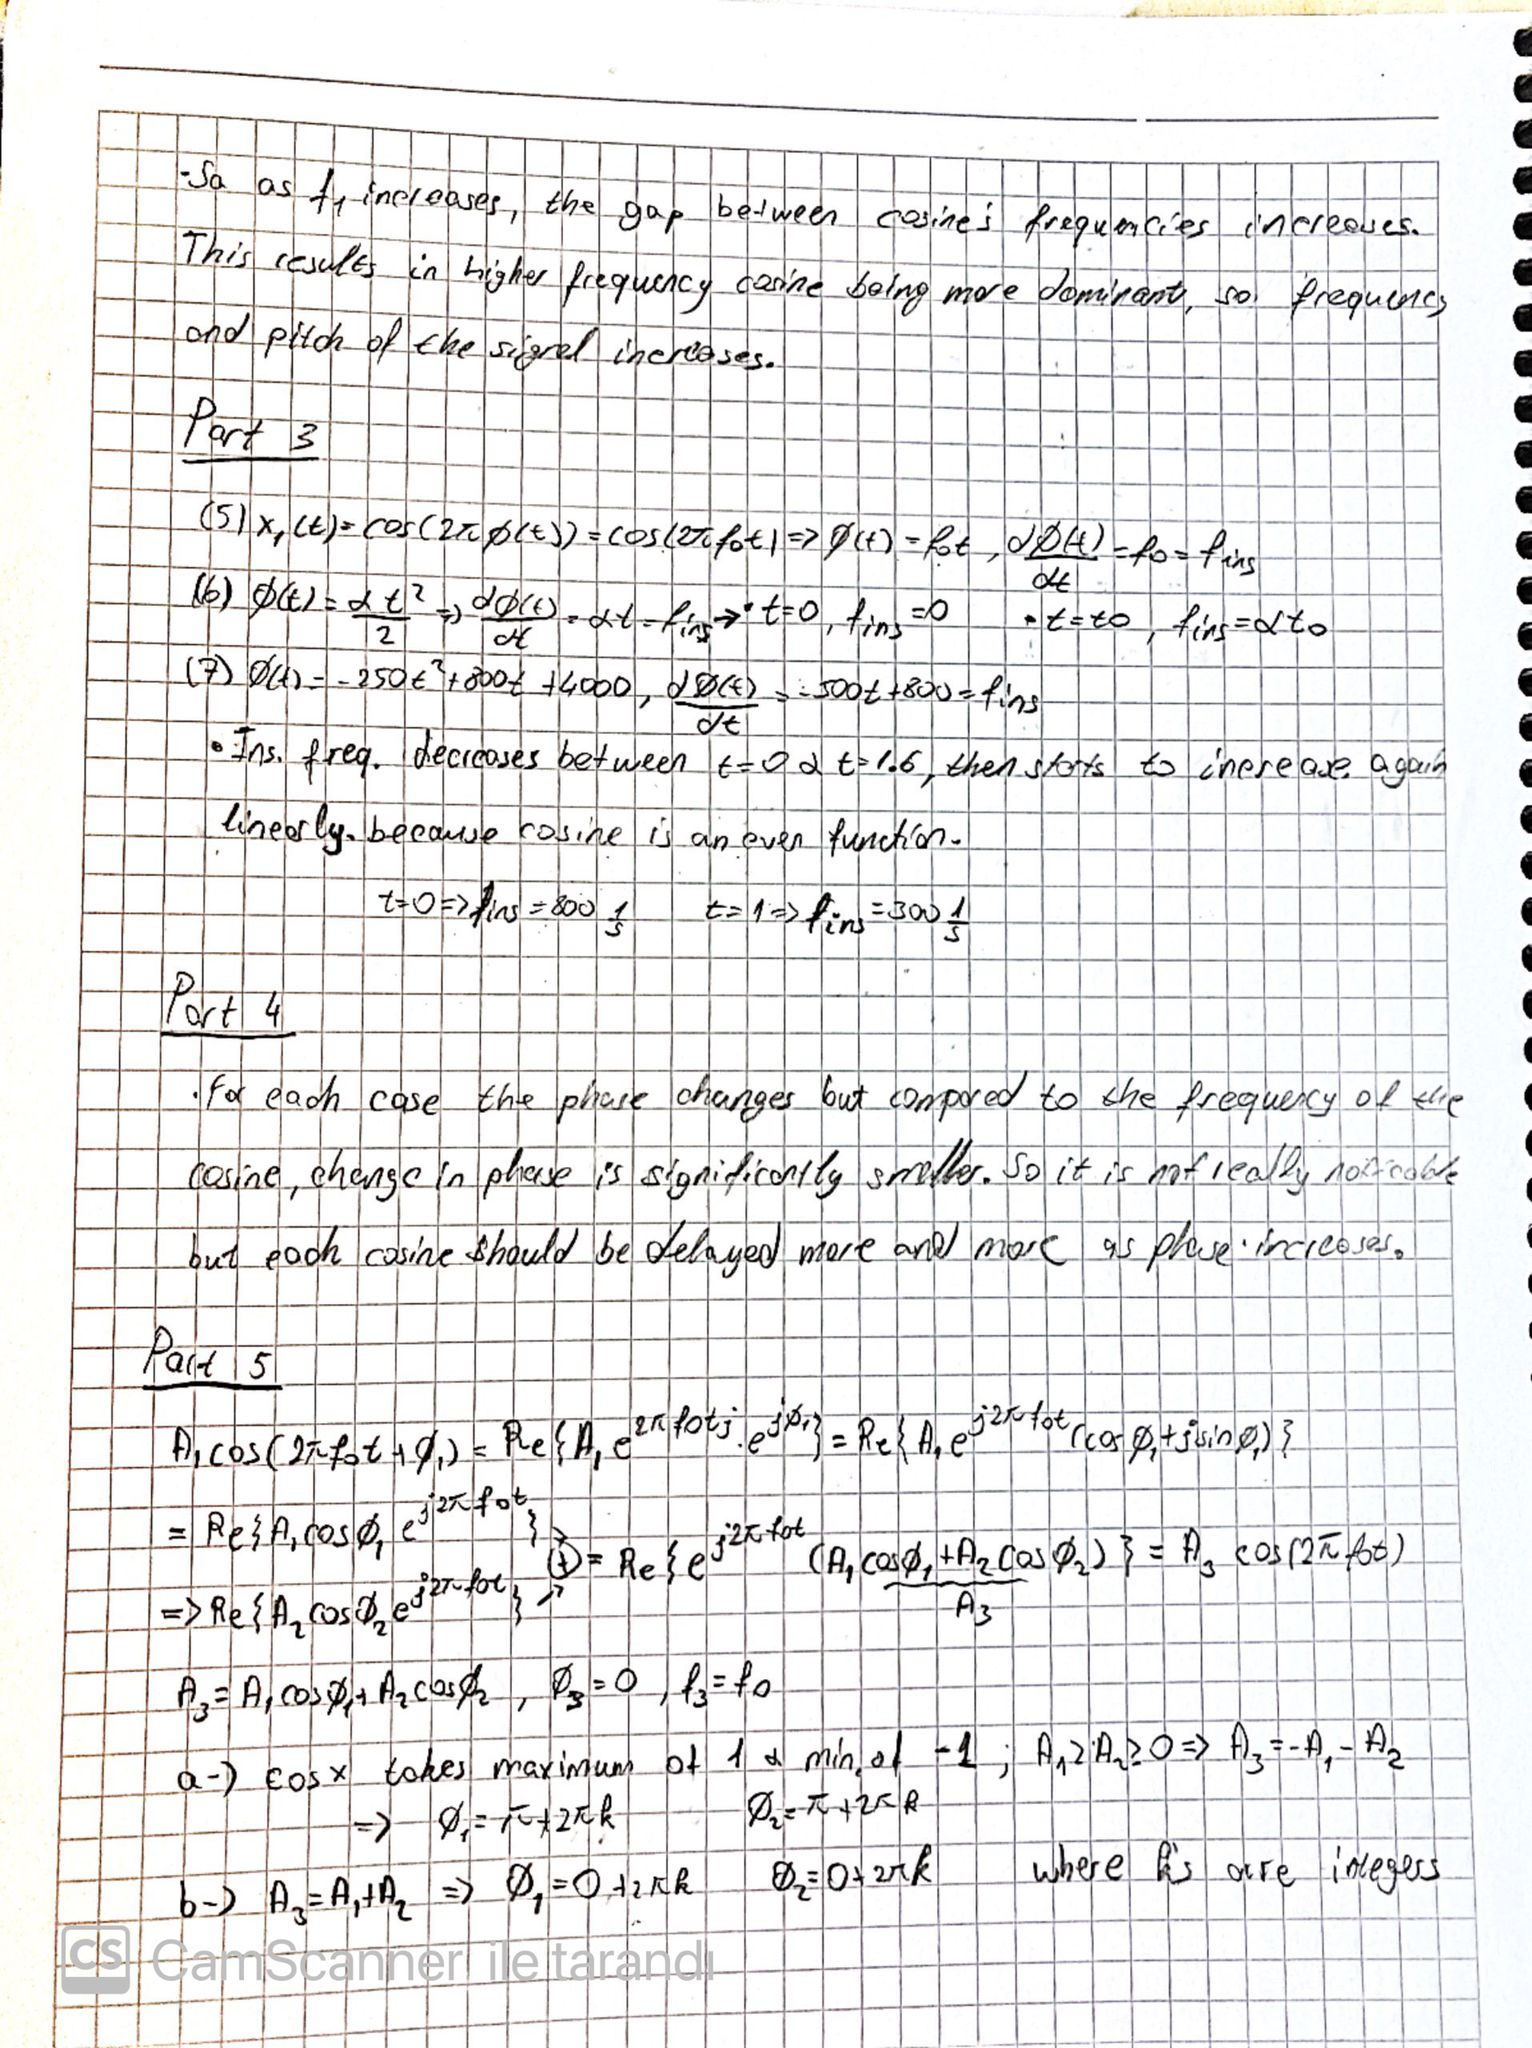 -So as f₁ increases, the gap between cosine's frequencies increases.
This results in higher frequency cosine being more dominant, so frequency
and pitch of the signal increases.
Part 3
(5) x₁(t)=cos(2πø(t))=cos(2πf₀t) => ø(t)=f₀t, dø(t)/dt = f₀ = fins
(6) ø(t)=αt²/2 => dø(t)/dt = αt = fins → • t=0, fins=0 • t=t₀, fins=αt₀
(7) ø(t)= -250t²+800t+4000, dø(t)/dt = -500t+800 = fins
• Ins. freq. decreases between t=0 & t=1.6, then starts to increase again
linearly. because cosine is an even function.
t=0 => fins = 800 1/s t=1 => fins = 300 1/s
Part 4
. For each case the phase changes but compared to the frequency of the
cosine, change in phase is significantly smaller. So it is not really noticable
but each cosine should be delayed more and more as phase increases.
Part 5
A₁cos(2πf₀t+ø₁) = Re{A₁e^{2πf₀tj}.e^{jø₁}} = Re{A₁e^{j2πf₀t}(cosø₁+jsinø₁)}
= Re{A₁cosø₁e^{j2πf₀t}}
(+) = Re{e^{j2πf₀t}(A₁cosø₁+A₂cosø₂)} = A₃cos(2πf₀t)
=> Re{A₂cosø₂e^{j2πf₀t}}
A₃
A₃=A₁cosø₁+A₂cosø₂, ø₃=0, f₃=f₀
a-) cosx takes maximum of 1 & min. of -1; A₁≥A₂≥0 => A₃=-A₁-A₂
=> ø₁=π+2πk ø₂=π+2πk
b-) A₃=A₁+A₂ => ø₁=0+2πk ø₂=0+2πk where k's are integers
CS CamScanner ile tarandı